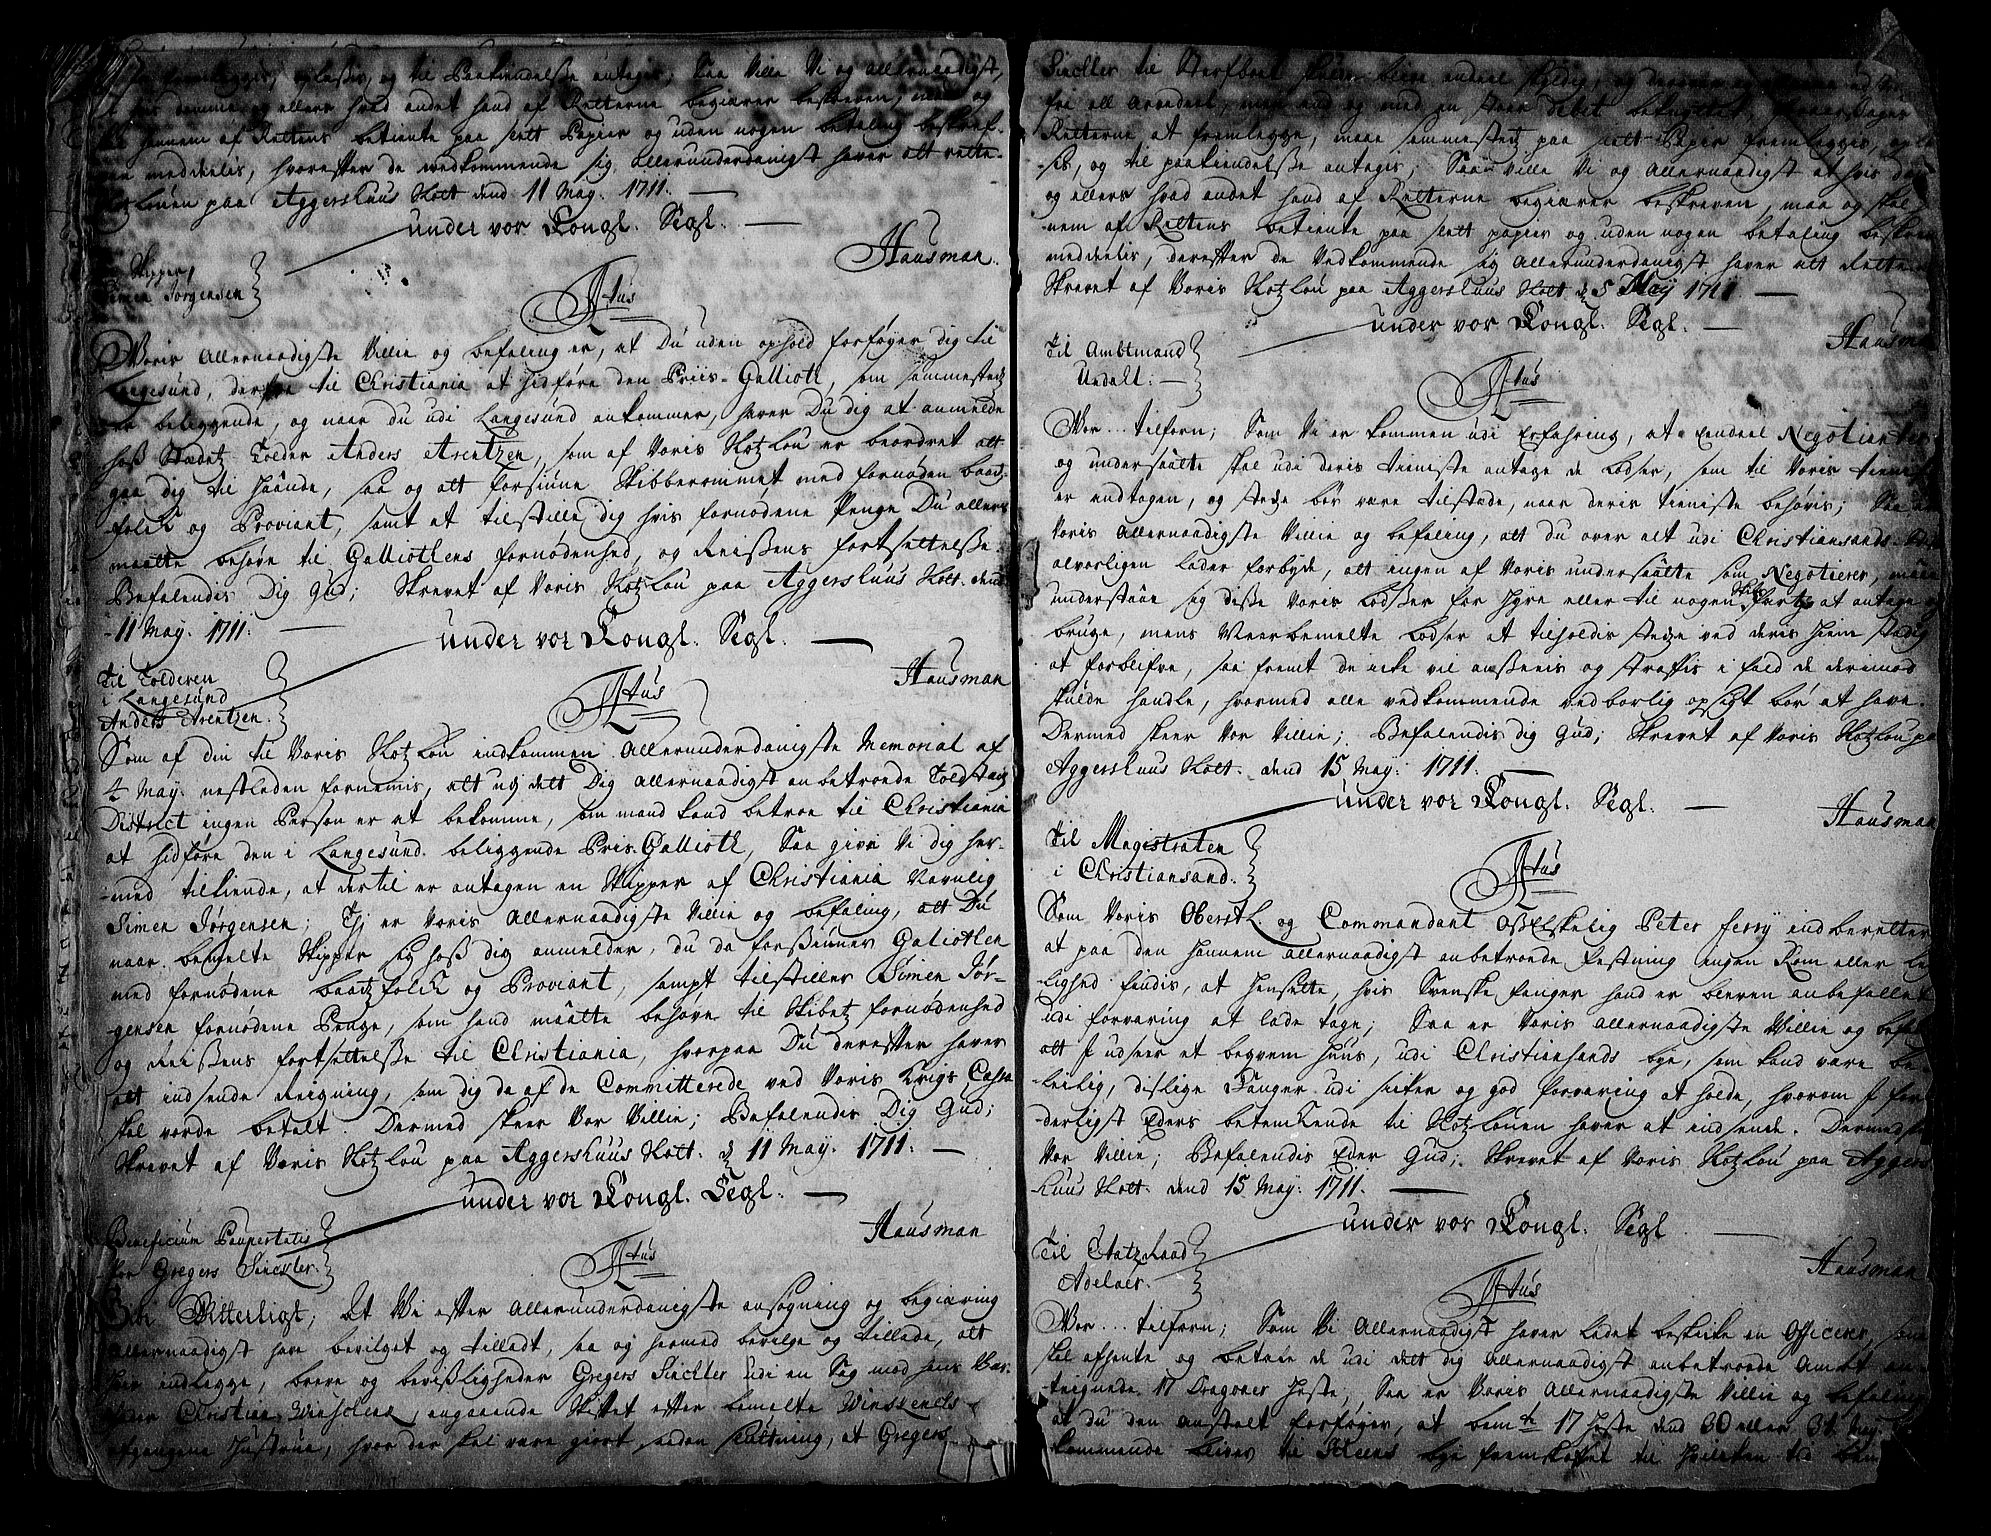 fremlegges, oplæsses, og til Paakiendelsse antages; Saa Ville Vi og allernaadigst,
at hvis domme og ellers hvad andet hand af Retterne begiærer beskreven, maa og
skal hannem af Rettens betiente paa slett Papier og uden nogen betaling beskref-
ven meddelis, hvorefter de vedkommende sig allerunderdanigst haver att rette.
Slotzloven paa Aggershuus Slott dend 11 May. 1711.
under vor Kongl. Segl.
Hausman.
Skipper
Simen Jørgensen
Actus
Voris Allernaadigste Villie og befaling er, at Du uden ophold forføyer dig til
Langesund, derfra til Christiania at hidføre den Priis-Gallioth, som sammestedz
er beliggende, og naar du udi Langesund ankommer, haver Du dig at anmelde
hoss Stædetz Tolder Anders Arentzen, som af Voris Slotzlou er beordret att
gaa dig til haande, saa og att forsiune Skibberommet med fornøden baadz-
folck og Proviant, samt at tilstille dig hvis fornødene Penge Du allers
maatte behøve til Galliothens fornødenhed, og Reissens fortsettelsse.
Befalendis Dig Gud; Skrevet af Voris Slotzlou paa Aggershuus Slott. dend
11 May. 1711.
under vor Kongl. Segl.
Hausman
Til Tolderen
i Langesund
Anders Arentzen.
Actus
Som af din til Voris Slotzlou indkommen Allerunderdanigste Memorial af
4 May. nestleden fornemis, att udj dett Dig allernaadigst anbetroede Toldstædz
District ingen Person er at bekomme, som mand kand betroe til Christiania
at hidføre den i Langesund beliggende Pris-Galliott, Saa give Vi dig her-
med tilkiende, at dertil er antagen en Skipper af Christiania Navnlig
Simen Jørgensen; Thj er Voris Allernaadigste Villie og befaling, att Du
naar bemelte Skipper sig hoss dig anmelder, du da forsiuner Galiothen
med fornødene baadzfolck og Proviant, sampt tilstiller Simen Jør-
gensen fornødene Penge, som hand maatte behøve til Skibetz fornødenhed
og Reissens fortsettelsse til Christiania, hvorpaa Du derefter haver
att indsende Reigning, som dig da af de Committerede ved Voris Krigs Cassa
skal vorde betalt. Dermed skeer Vor Villie; Befalendis Dig Gud;
Skrevet af Voris Slotzlou paa Aggershuus Slott. d 11 May. 1711.
under vor Kongl. Segl.
Hausman
Beneficium Paupertatis
for Gregers Sinchler.
Actus
Giør Vitterligt, At Vi efter Allerunderdanigste ansøgning og begiæring
allernaadigst have bevilget og tilladt, saa og hermed bevilge og tillade, att
indlegge, breve og bevissligheder Gregers Sinchler udi en Sag mod hans
Christian, angaaende Skiftet efter bemelte
afgangene Hustrue, hvor der skal være giort saadan Slutning, at Gregers
Sinchler til Sterfboet skulle blive endeel skyldig, og
fri all Arvedeel, men end og med en stoer debet
Retterne at fremlegge, maae sammestedz paa slett Papier fremlegges, oplæs-
ses, og til paakiendelsse antages; Saa ville Vi og Allernaadigst at hvis domme
og ellers hvad andet hand af Retterne begiærer beskreven, maa og skal
hannem af Rettens betiente paa slett papier og uden nogen betaling beskreven
meddelis, derefter de Vedkommende sig allerunderdanigst haver att Rette.
Skrevet af Voris Slotzlou paa Aggershuus Slott d 5 Maij 1711.
under vor Kongl. Segl.
Hausman
Til Ambtmand
Undalt:
Actus
Vor.. tilforn; Som Vi er kommen udi Erfahring, at Eendeel Negotianter
og undersaatte skal udi deris tieniste antage de Lodser, som til Voris tieniste
er antagen, og stedse bør være tilstæde, naar deris tieniste behøvis; Saa er
Voris Allernaadigste Villie og befaling, att du over alt udi Christiansands
alvorligen lader forbyde, att ingen af Voris undersaatte som Negotierer, maae
understaae sig disse Voris Lodsser for hyre eller til nogen Skibs fartz at antage og
bruge, mens Meerbemelte Lodser at tilholdis stedse ved deris hiem stadig
at forblifve, saa fremt de icke vil ansees og straffis i fald de derimod
skulde handle, hvormed alle vedkommende ved borlig opsigt bør at have.
Dermed skeer Vor Villie; Befalendis dig Gud; Skrevet af Voris Slotzlou paa
Aggershuus Slott. dend 15 May: 1711.
under vor Kongl. Segl.
Hausman
Til Magistraten
i Christiansand.
Actus
Som Voris Oberstl. og Commandant Oss Elskelig Peter Ferry indberetter
at paa den hannem allernaadigst anbetroede Festning ingen Rom eller lei-
lighed findis, at hensette, hvis Svenske fanger hand er bleven anbefallet
udi forvaring at lade tage; Saa er Voris allernaadigste Villie og befaling
att I udseer et beqvem huus, udi Christianssands bye, som kand være be-
leilig, dislige Fanger udi sicker og god forvaring at holde, hvorom I for-
derligst Eders betenckende til Slotzlouen haver at indsende. Dermed skeer
Vor Villie; Befalendis Eder Gud; Skrevet af Voris Slotzlou paa Aggers-
huus Slott. dend 15. May: 1711.
under vor Kongl. Segl
Hausman
Til Etatz Raad
Adelaer.
Actus
Vor.. tilforn; Som Vi Allernaadigst haver ladet beskicke en Officerer, som
skal afhente og betale de udi dett dig allernaadigst anbetroede Ambt an-
teignede 17 Dragoner heste, Saa er Voris Allernaadigste Villie og befaling
at du den anstalt forføyer, at bemte 17 heste dend 30 eller 31 May
kommende blive til Skeens bye fremskaffet til hvilcken tid